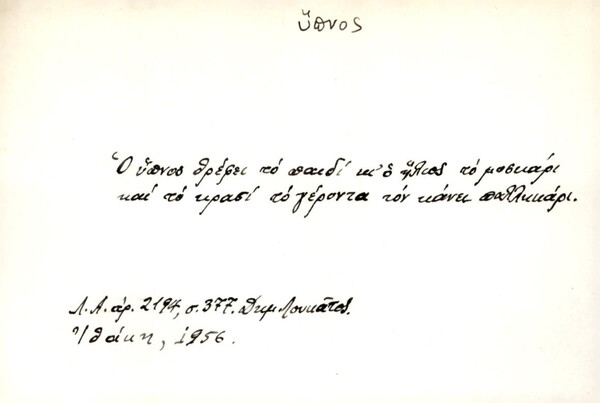 ὕπνος
Ὁ ὕπνος θρέφει τό παιδί κι' ὁ ἥλιος τό μοσκάρι
καί τό κρασί τό γέροντα τόν κάνει παλληκάρι.
Λ.Α. ἀρ. 2194, σ. 377. Δημ. Λουκᾶτος.
Ἰθάκη, 1956.